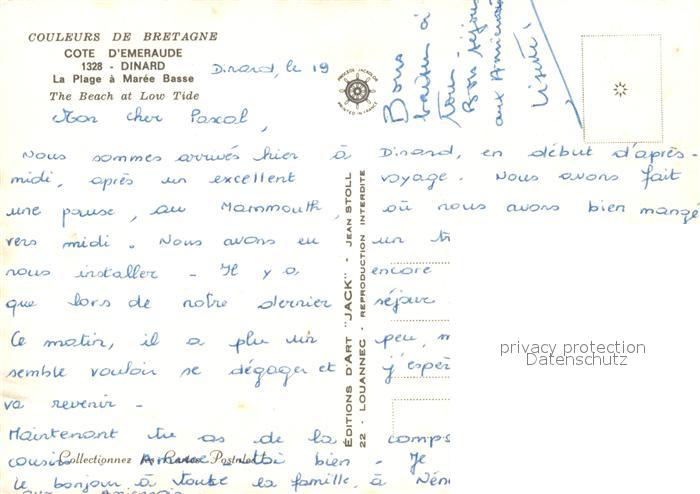 COULEURS DE BRETAGNE
COTE D'EMERAUDE
1328 - DINARD
La Plage à Marée Basse
The Beach at Low Tide
Dinard, le 19
Mon cher Pascal,
Nous sommes arrivés hier à Dinard, en début d'après-
midi, après un excellent voyage. Nous avons fait
une pause, au Mammouth, où nous avons bien mangé
vers midi. Nous avons eu un
nous installer - Il y a encore
que lors de notre dernier séjour
Ce matin, il a plu un peu,
semble vouloir se dégager et j'espèr
va revenir -
Maintenant tu as de la comp
cousins bien - Je
le bonjour à toute la famille, à
Collectionnez les Cartes Postales
Bons
baisers à
tous
Bon séjour
aux
ÉDITIONS D'ART "JACK" - JEAN STOLL
22 - LOUANNEC - REPRODUCTION INTERDITE
PROCÉDÉ JACKOLOR
PRINTED IN FRANCE
privacy protection
Datenschutz